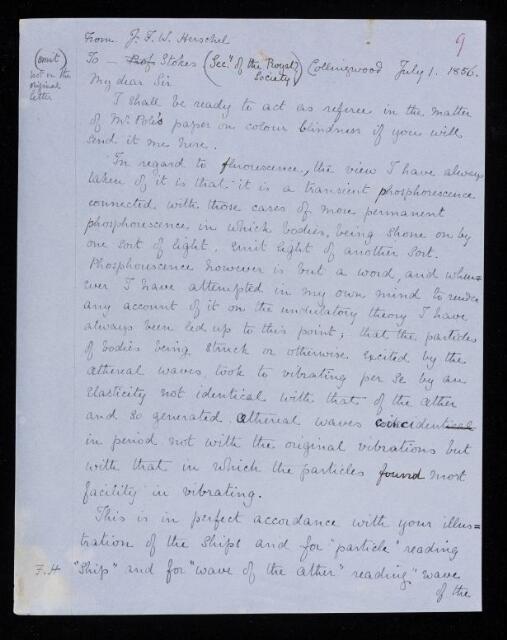 From J. F. W. Herschel
9
To – Prof Stokes (Secy of the Royal Society) Collingwood July 1. 1856.
(omit not on the original letter)
My dear Sir
I shall be ready to act as referee in the matter
of Mr Pole's paper on colour blindness if you will
send it me here.
In regard to fluorescence, the view I have always
taken of it is that it is a transient phosphorescence
connected with those cases of more permanent
phosphorescence in which bodies, being shone on by
one sort of light, emit light of another sort.
Phosphorescence however is but a word, and when=
ever I have attempted in my own mind to render
any account of it on the undulatory theory I have
always been led up to this point; that the particles
of bodies being struck or otherwise excited by the
æthereal waves, took to vibrating per se by an
elasticity not identical with that of the æther
and so generated æthereal waves coincidentical
in period not with the original vibrations but
with that in which the particles found most
facility in vibrating.
This is in perfect accordance with your illus=
tration of the ships and for "particle" reading
F.H "Ship" and for "wave of the æther" reading "wave
of the